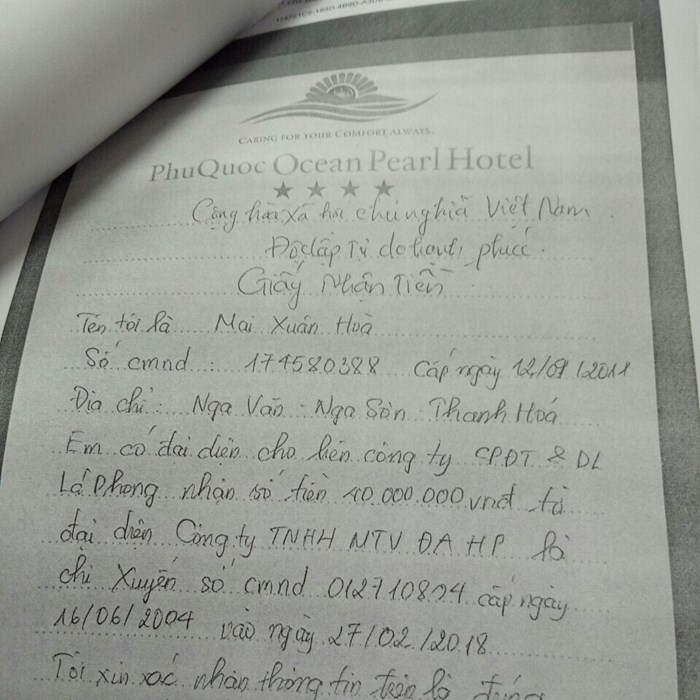 CARING FOR YOUR COMFORT ALWAYS.
PhuQuoc Ocean Pearl Hotel
Cộng hòa xã hội chủ nghĩa Việt Nam
Độc lập Tự do hạnh phúc
Giấy Nhận Tiền
Tên tôi là Mai Xuân Hoà
Số cmnd: 174580388 Cấp ngày 12/09/2011
Địa chỉ: Nga Văn - Nga Sơn Thanh Hoá
Em có đại diện cho bên công ty CPĐT & DL
Lá Phong nhận số tiền 40.000.000 vnđ từ
đại diện Công ty TNHH MTV ĐA HP là
chị Xuyến số cmnd 012710804 cấp ngày
16/06/2004 vào ngày 27/02/2018
Tôi xin xác nhận thông tin trên là đúng